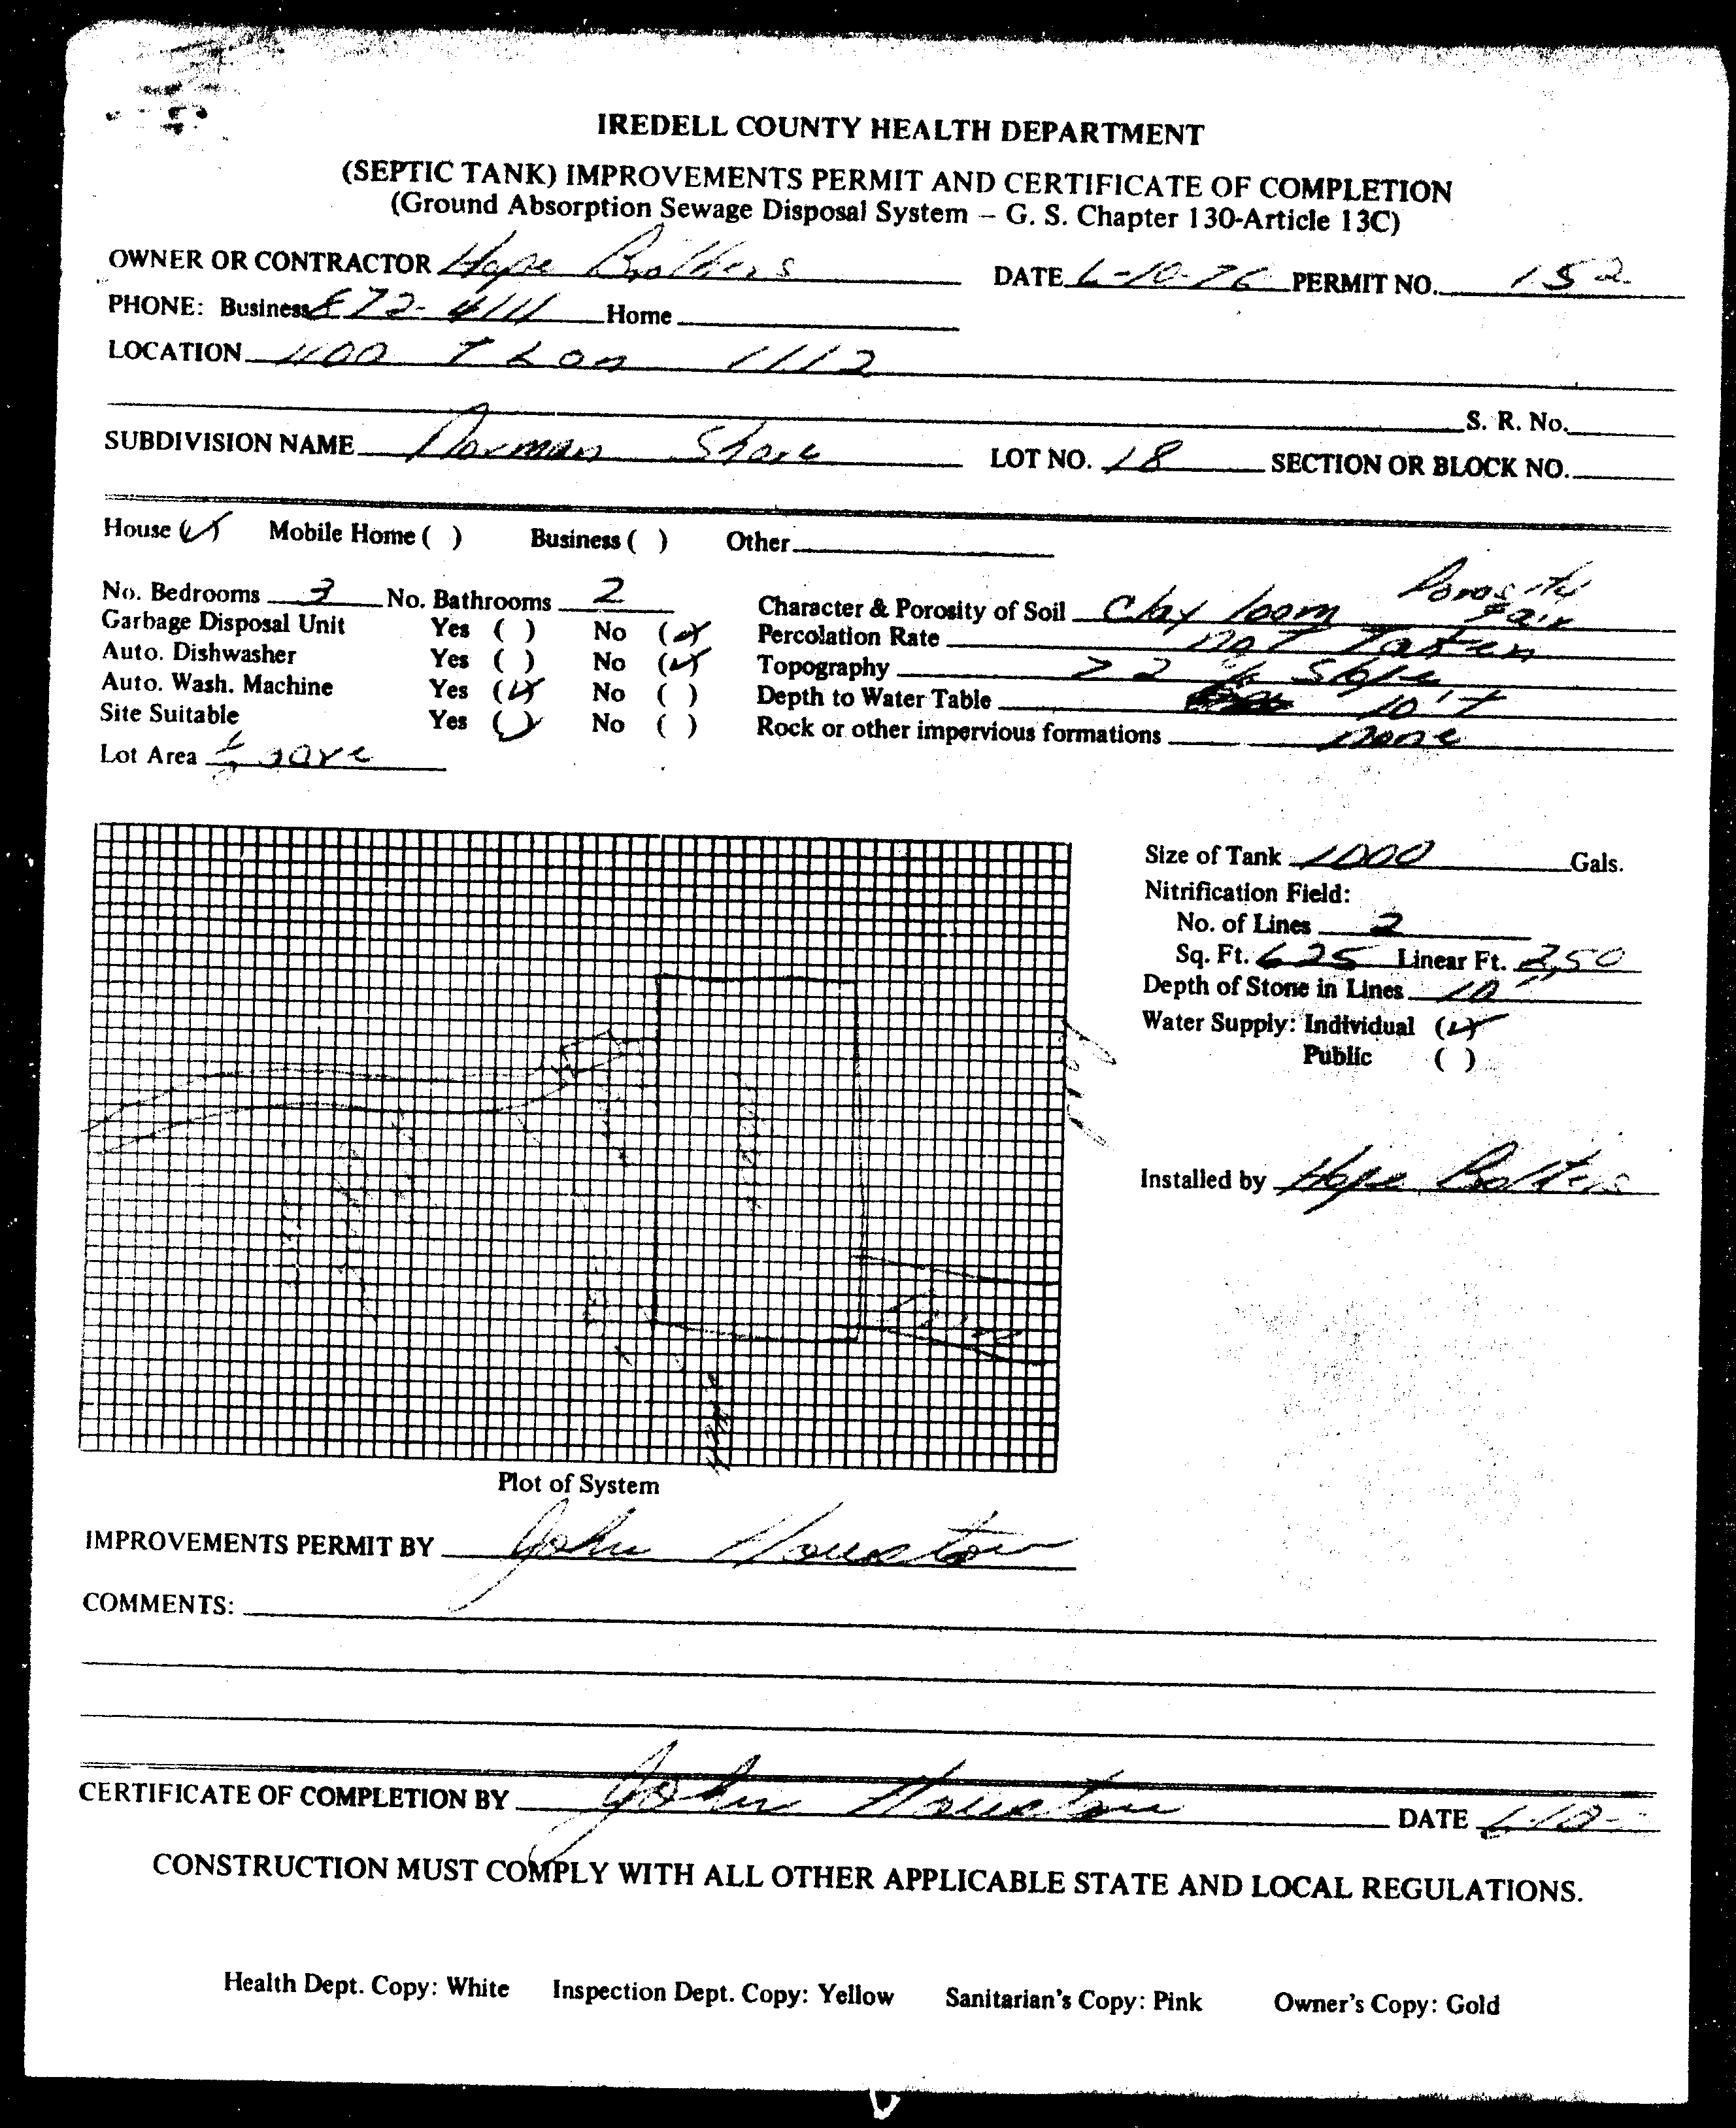 IREDELL COUNTY HEALTH DEPARTMENT
(SEPTIC TANK) IMPROVEMENTS PERMIT AND CERTIFICATE OF COMPLETION
(Ground Absorption Sewage Disposal System – G. S. Chapter 130-Article 13C)
OWNER OR CONTRACTOR Hope Brothers DATE 6-10-76 PERMIT NO. 152
PHONE: Business 872-4111 Home
LOCATION 1100 T L on 1112
S. R. No.
SUBDIVISION NAME Norman Shore LOT NO. 18 SECTION OR BLOCK NO.
House (✓) Mobile Home ( ) Business ( ) Other
No. Bedrooms 3 No. Bathrooms 2 Character & Porosity of Soil Clay loom Porosity Fair
Garbage Disposal Unit Yes ( ) No (✓) Percolation Rate not Taken
Auto. Dishwasher Yes ( ) No (✓) Topography > 2 % Slope
Auto. Wash. Machine Yes (✓) No ( ) Depth to Water Table 10'+
Site Suitable Yes (✓) No ( ) Rock or other impervious formations none
Lot Area
Size of Tank 1000 Gals.
Nitrification Field:
No. of Lines 2
Sq. Ft. 625 Linear Ft. 250
Depth of Stone in Lines 10"
Water Supply: Individual (✓)
Public ( )
Installed by Hope Brothers
Plot of System
IMPROVEMENTS PERMIT BY John Houston
COMMENTS:
CERTIFICATE OF COMPLETION BY John Houston DATE 6-10-
CONSTRUCTION MUST COMPLY WITH ALL OTHER APPLICABLE STATE AND LOCAL REGULATIONS.
Health Dept. Copy: White Inspection Dept. Copy: Yellow Sanitarian's Copy: Pink Owner's Copy: Gold